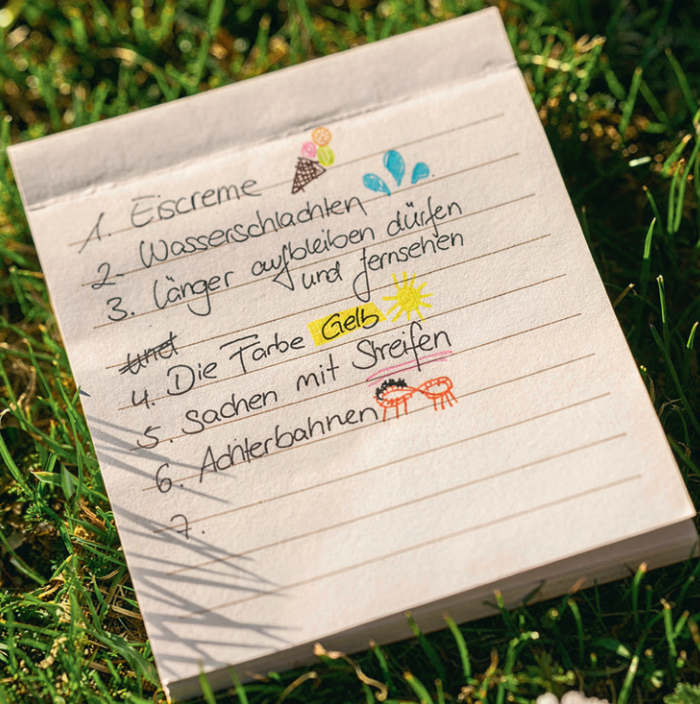 1. Eiscreme
2. Wasserschlachten
3. Länger aufbleiben dürfen
und fernsehen
und
4. Die Farbe Gelb
5. Sachen mit Streifen
6. Achterbahnen
7.